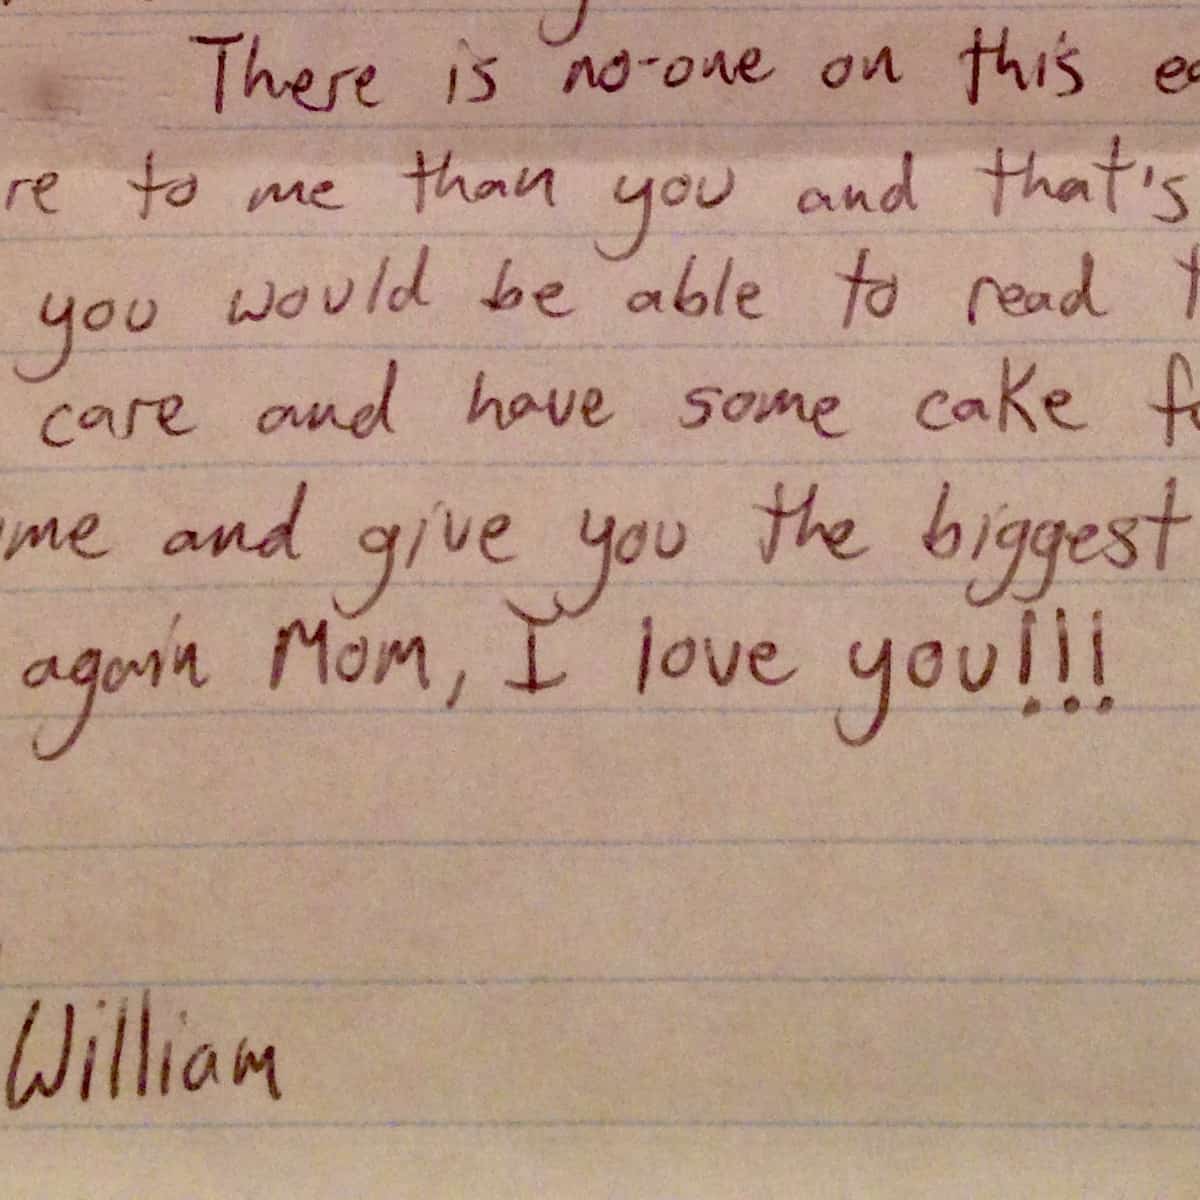 There is no-one on this
re to me than you and that's
you would be able to read
care and have some cake
me and give you the biggest
again Mom, I love you!!!
William